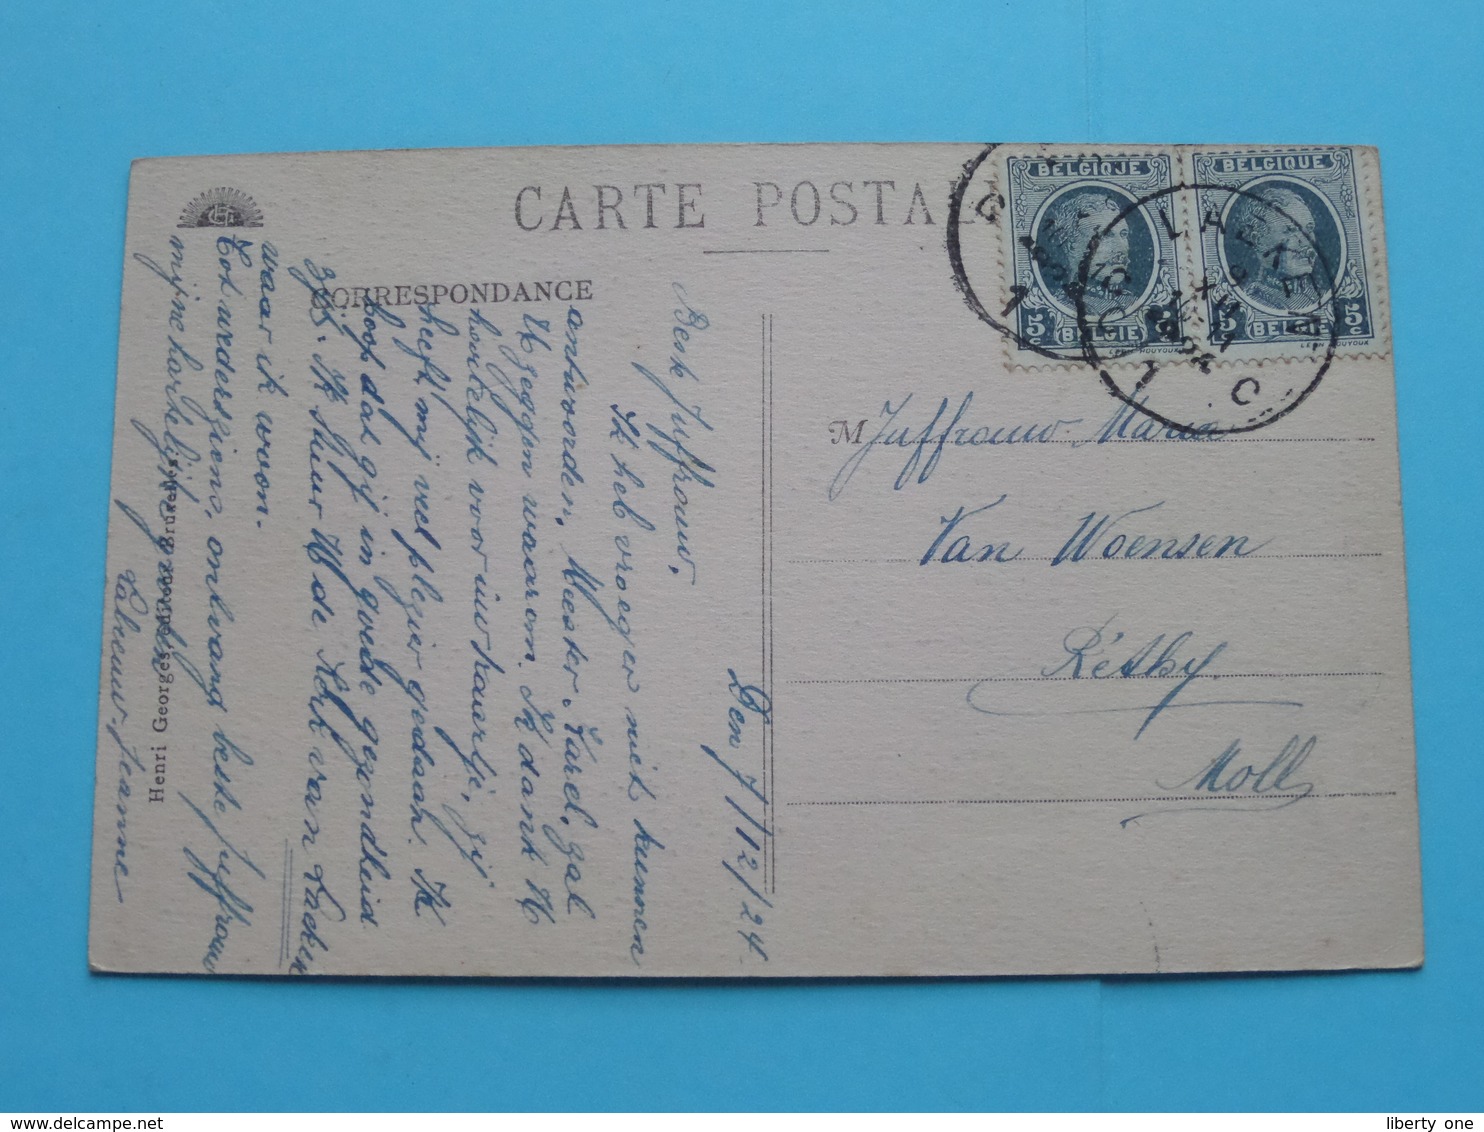 CARTE POSTAL
CORRESPONDANCE
BELGIQUE
BELGIQUE
5c
BELGIE
5c
5
BELGIE
5c
LAEKEN
1
Den 7/12/24.
Beste Juffrouw,
Ik heb vroeger niet kunnen
antwoorden, Meester Karel, zal
U zeggen waarom. Ik dank U
hertelijk voor uw kaartje, gij
heeft mij veel plezier gedaan. Ik
hoop dat gij in goede gezondheid
zijt. Ik stuur U de Kerk van Laeken
waar ik woon.
Tot wederziens, ontvang beste Juffrouw
mijne hartelijke groeten
Jeanne
Henri Georges, éditeur, Bruxelles
M Juffrouw Maria
Van Woensen
Réthy
Moll
liberty one